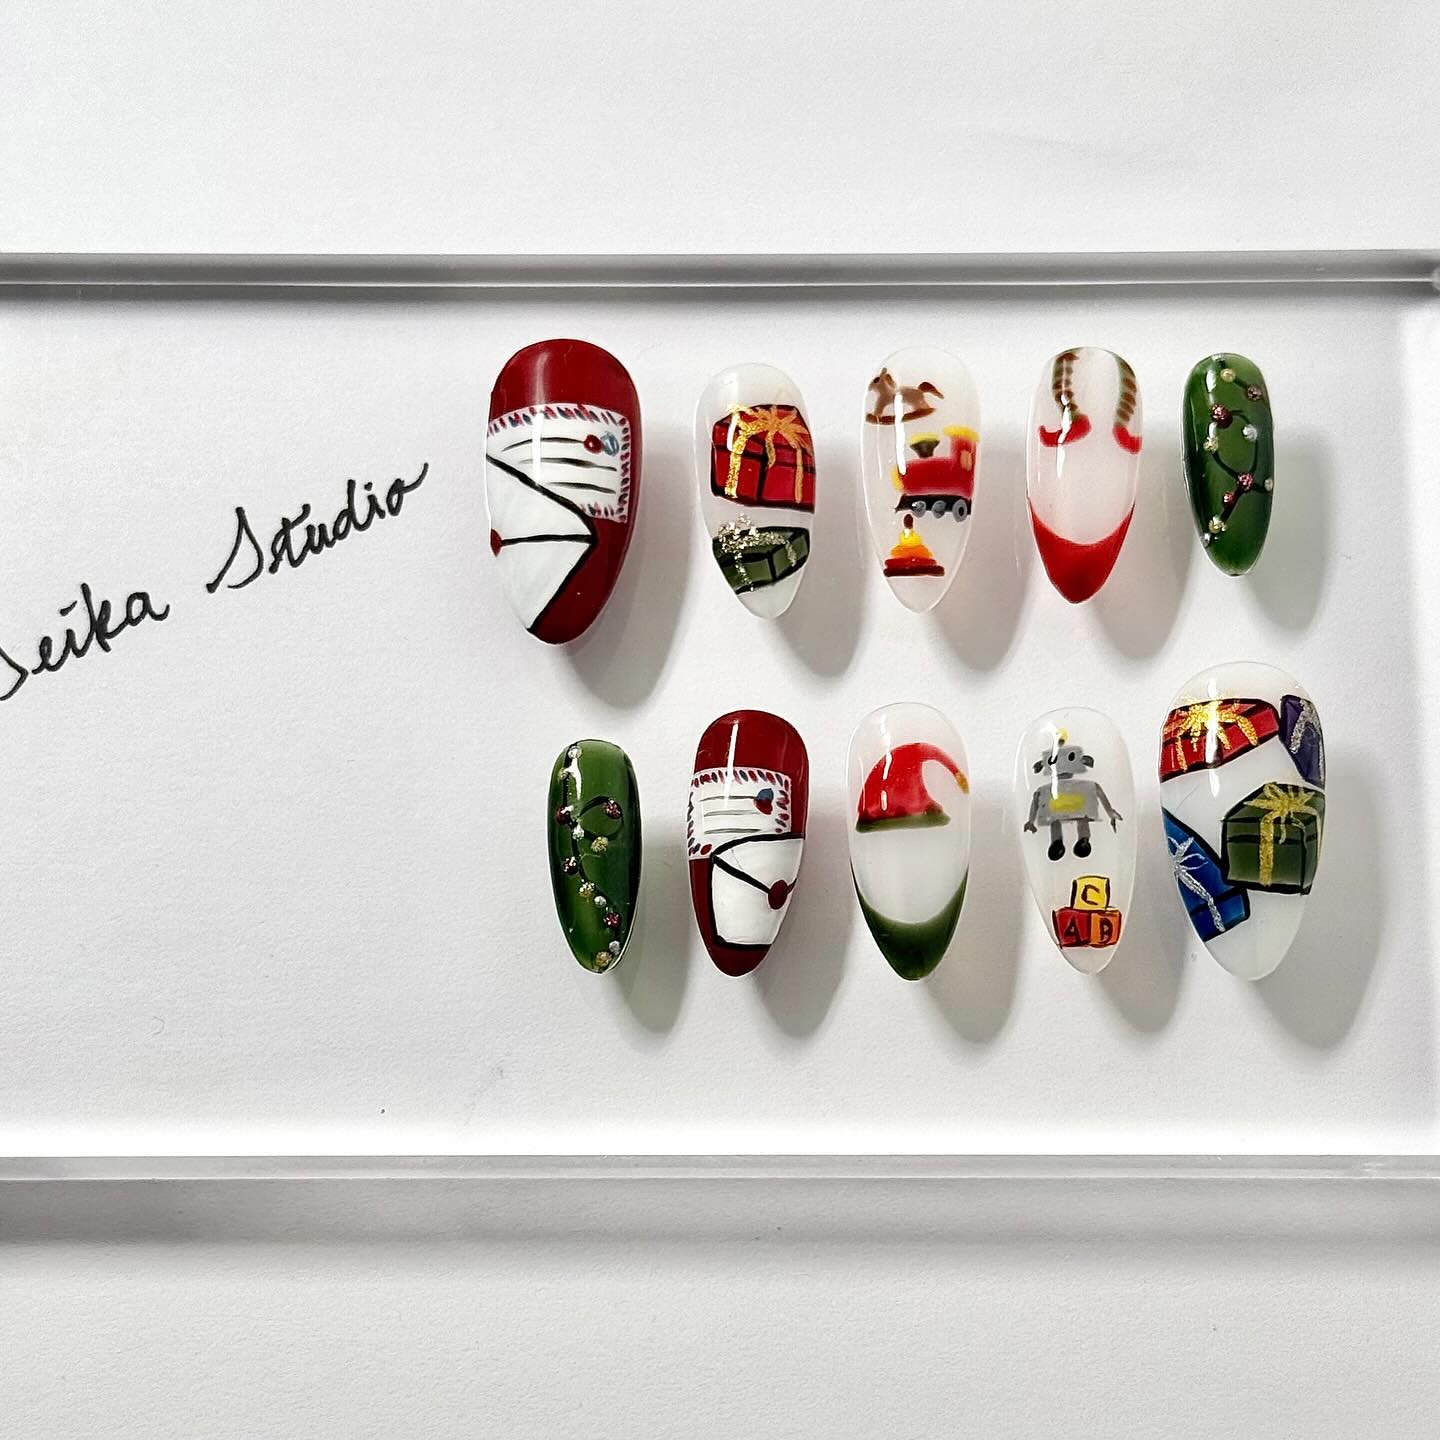 Seika Studio
C
A B